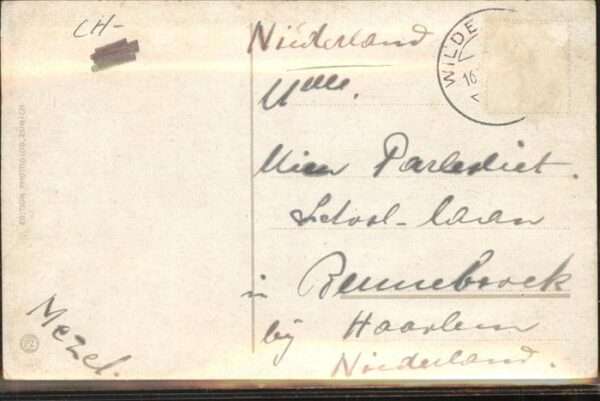 CH-
Niederland
WILDE
16.
Mlle.
Mien Parlevliet.
School-laan
in Bennebroek
bij Haarlem
Niederland.
Mezel.
EDITION PHOTOGLOB, ZÜRICH